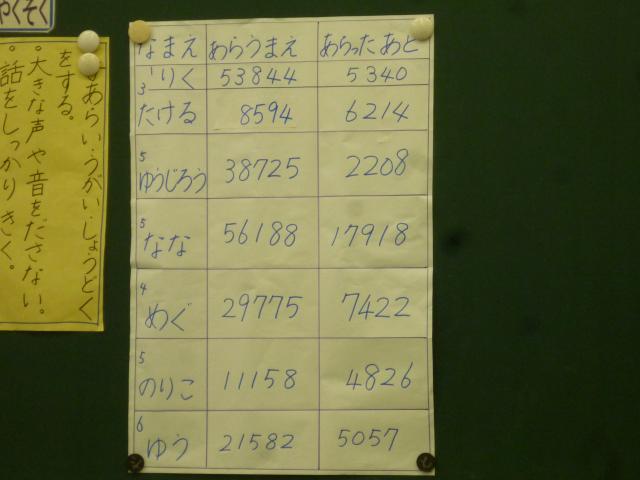 やくそく
あらい・うがい・しょうどく
をする。
・大きな声や音をださない。
・話をしっかりきく。
なまえ あらうまえ あらったあと
りく 53844 5340
3 たける 8594 6214
5 ゆうじろう 38725 2208
5 なな 56188 17918
4 めぐ 29775 7422
5 のりこ 11158 4826
6 ゆう 21582 5057